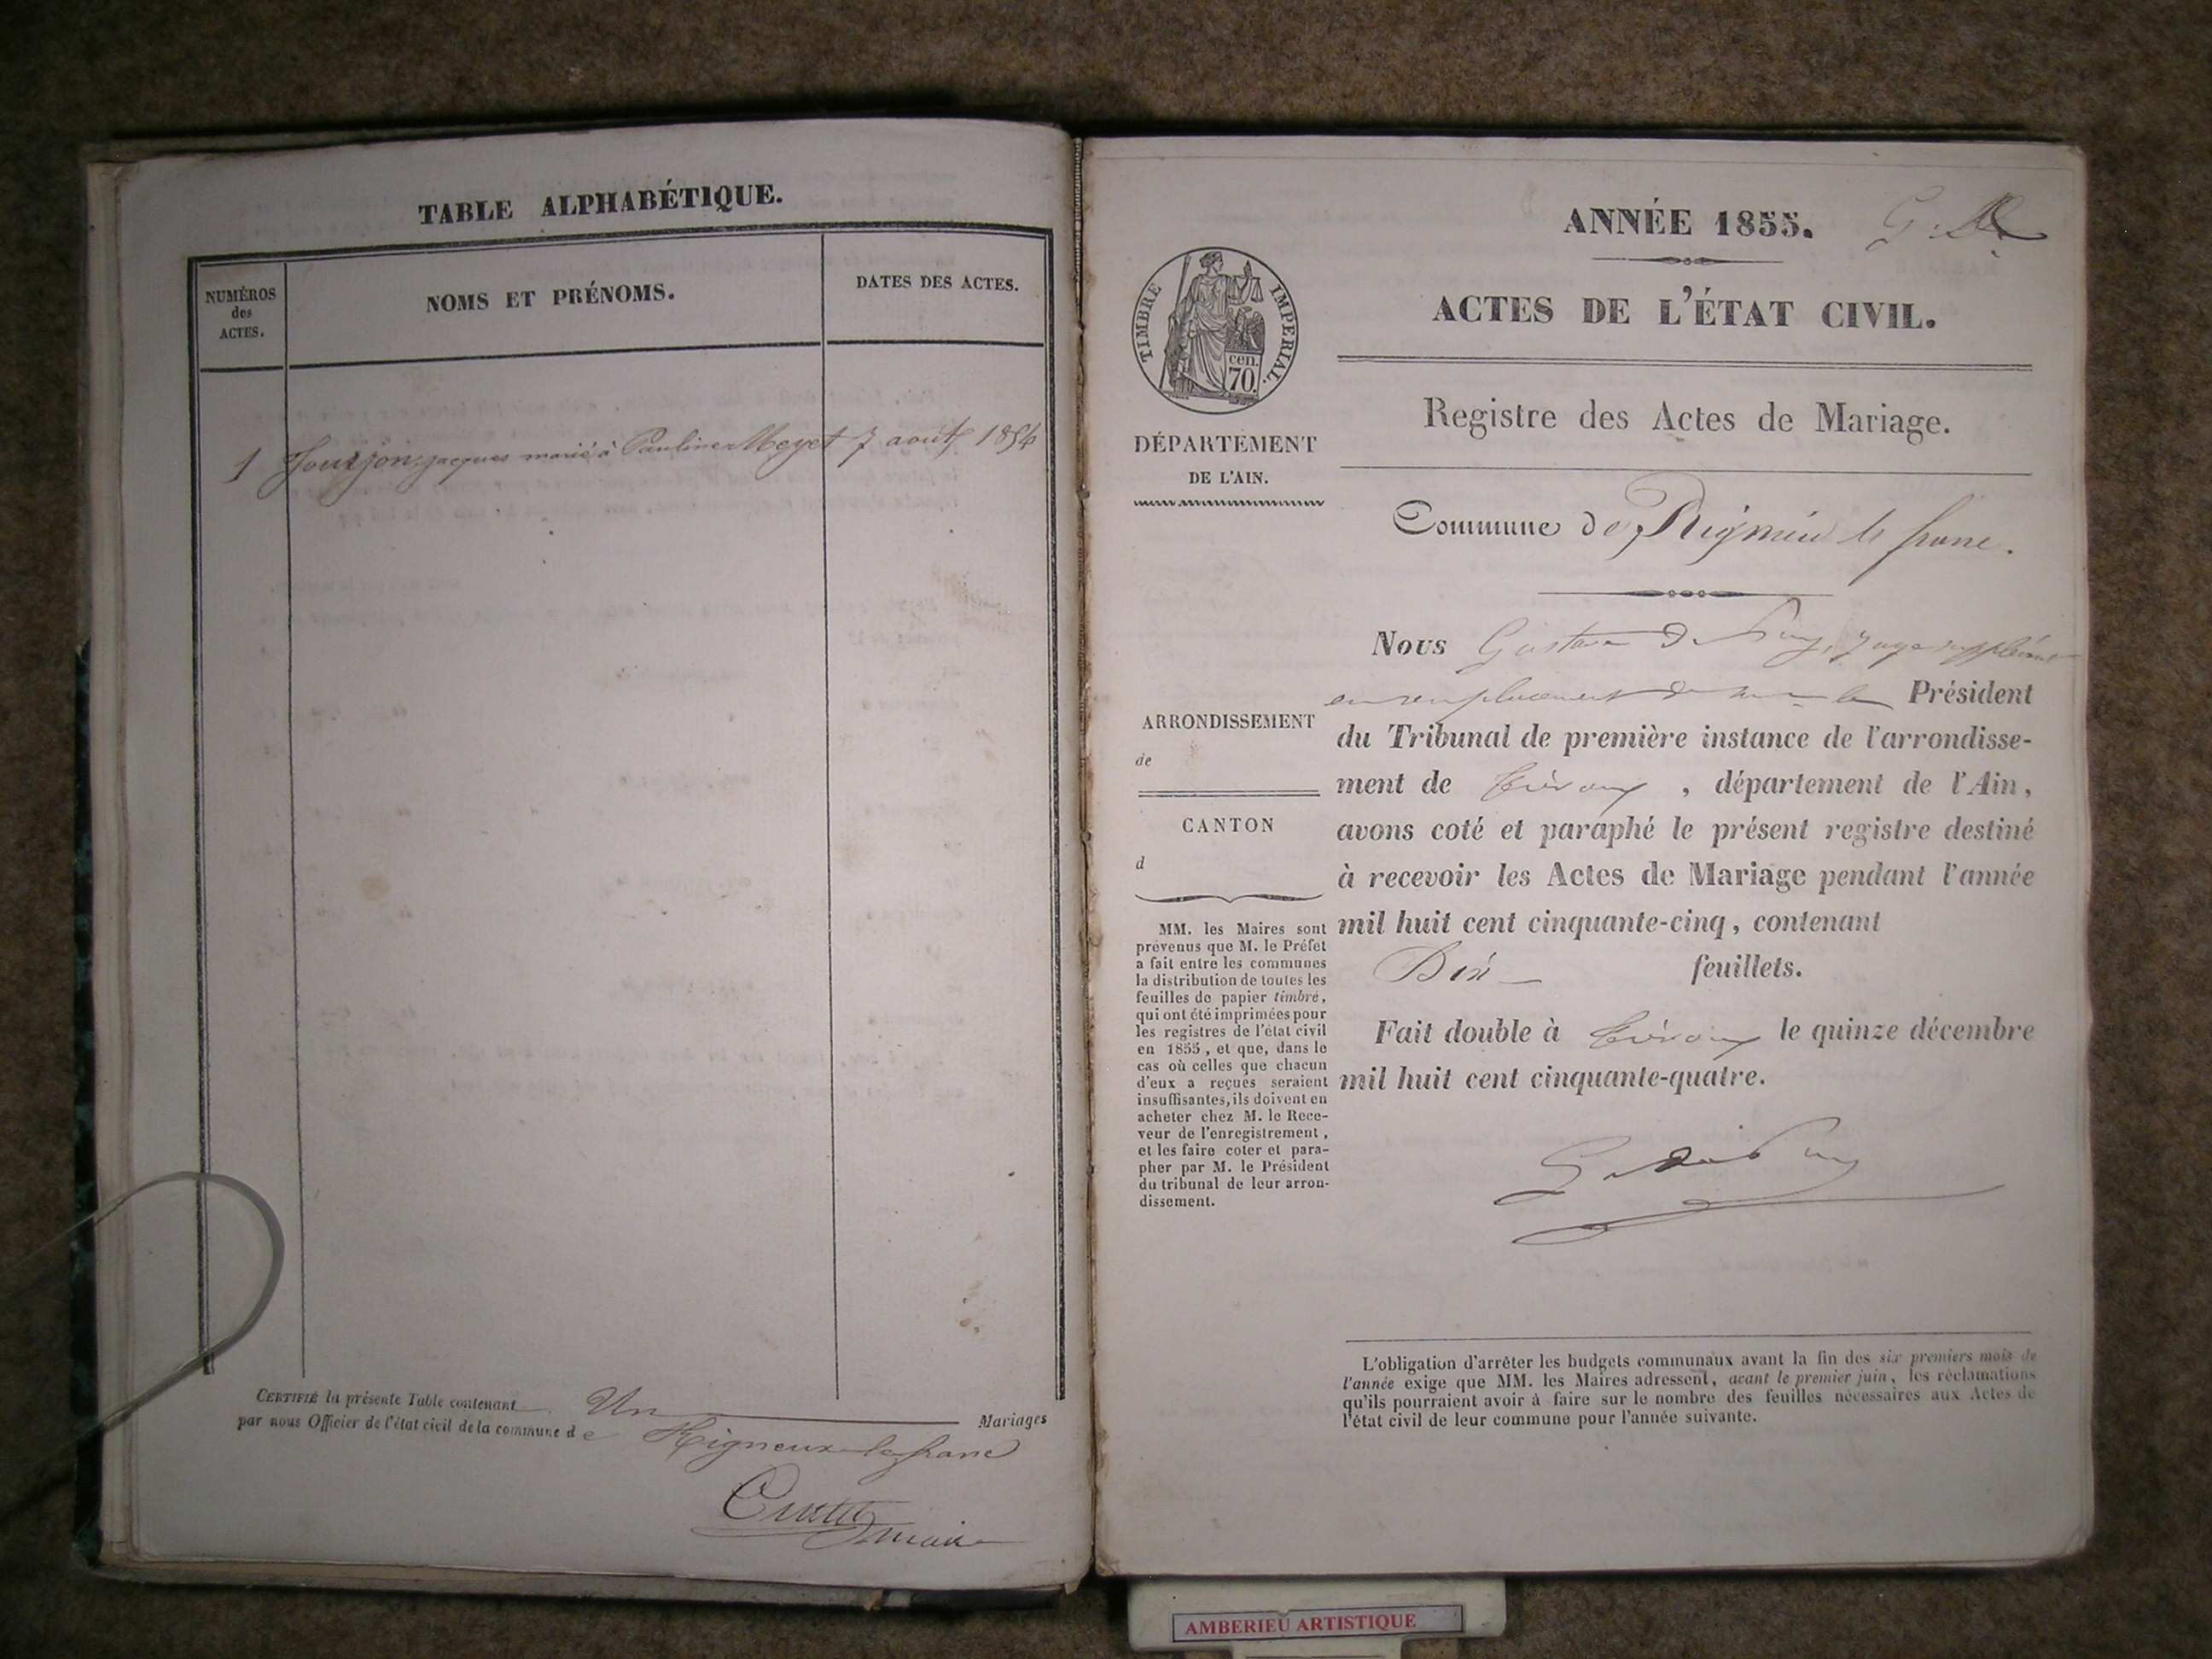 TABLE ALPHABÉTIQUE.
NUMÉROS
des
ACTES.
NOMS ET PRÉNOMS.
DATES DES ACTES.
1 jacques marié à Pauline Meyet 7 août 1854
CERTIFIÉ la présente Table contenant Un Mariages
par nous Officier de l'état civil de la commune de Rigneux le franc
maire
ANNÉE 1855.
ACTES DE L'ÉTAT CIVIL.
TIMBRE IMPERIAL.
cen.
70.
DÉPARTEMENT
DE L'AIN.
Registre des Actes de Mariage.
Commune de Rignieu le franc.
ARRONDISSEMENT
de
CANTON
d
MM. les Maires sont
prévenus que M. le Préfet
a fait entre les communes
la distribution de toutes les
feuilles de papier timbré,
qui ont été imprimées pour
les registres de l'état civil
en 1855, et que, dans le
cas où celles que chacun
d'eux a reçues seraient
insuffisantes, ils doivent en
acheter chez M. le Rece-
veur de l'enregistrement,
et les faire coter et para-
pher par M. le Président
du tribunal de leur arron-
dissement.
Nous Gustave juge suppléant
en remplacement de le Président
du Tribunal de première instance de l'arrondisse-
ment de Trévoux, département de l'Ain,
avons coté et paraphé le présent registre destiné
à recevoir les Actes de Mariage pendant l'année
mil huit cent cinquante-cinq, contenant
Dix feuillets.
Fait double à Trévoux le quinze décembre
mil huit cent cinquante-quatre.
L'obligation d'arrêter les budgets communaux avant la fin des six premiers mois de
l'année exige que MM. les Maires adressent, avant le premier juin, les réclamations
qu'ils pourraient avoir à faire sur le nombre des feuilles nécessaires aux Actes de
l'état civil de leur commune pour l'année suivante.
AMBERIEU ARTISTIQUE